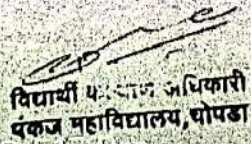 विद्यार्थी अधिकारी
पंकज महाविद्यालय, चोपडा